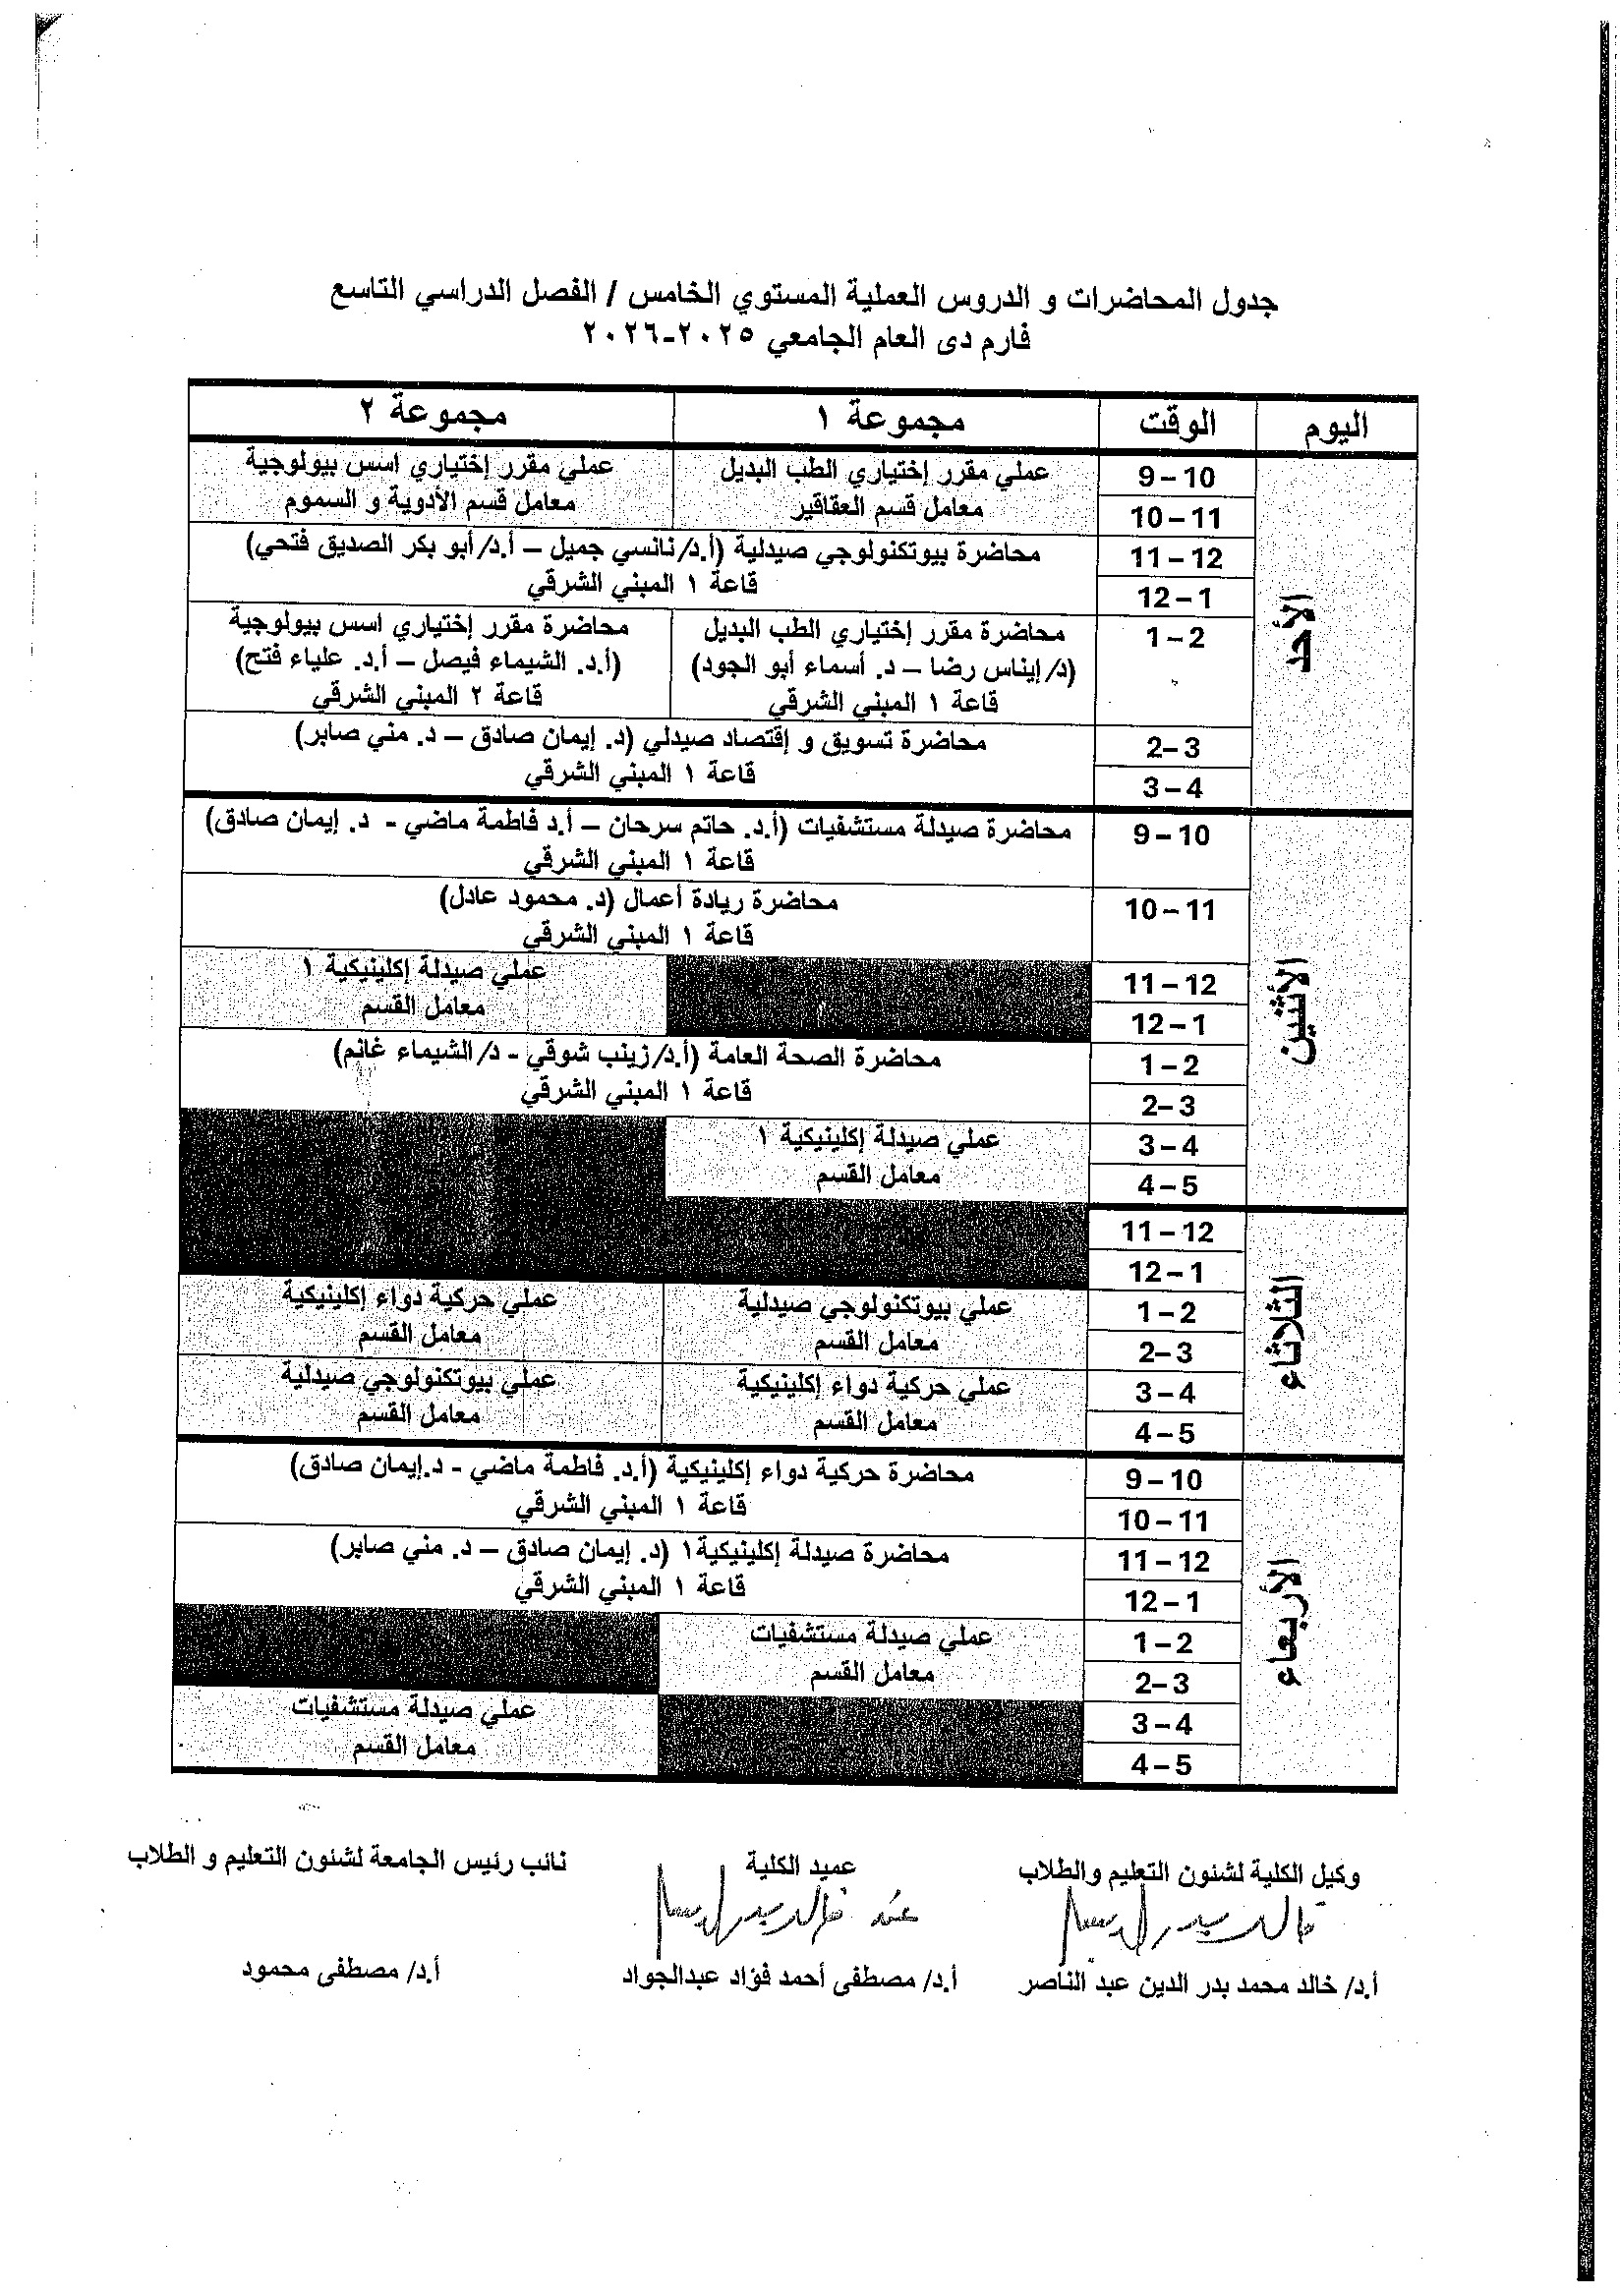 جدول المحاضرات و الدروس العملية المستوي الخامس / الفصل الدراسي التاسع
فارم دى العام الجامعي ٢٠٢٥-٢٠٢٦
اليوم الوقت مجموعة ١ مجموعة ٢
الأحد
9 – 10
10 – 11
عملي مقرر إختياري الطب البديل
معامل قسم العقاقير
عملي مقرر إختياري اسس بيولوجية
معامل قسم الأدوية و السموم
11 – 12
12 – 1
محاضرة بيوتكنولوجي صيدلية (أ.د/ نانسي جميل – أ.د/ أبو بكر الصديق فتحي)
قاعة ١ المبني الشرقي
1 – 2
محاضرة مقرر إختياري الطب البديل
(د/ إيناس رضا – د. أسماء أبو الجود)
قاعة ١ المبني الشرقي
محاضرة مقرر إختياري اسس بيولوجية
(أ.د. الشيماء فيصل – أ.د. علياء فتح)
قاعة ٢ المبني الشرقي
2– 3
3 – 4
محاضرة تسويق و إقتصاد صيدلي (د. إيمان صادق – د. مني صابر)
قاعة ١ المبني الشرقي
الأثنين
9 – 10
محاضرة صيدلة مستشفيات (أ.د. حاتم سرحان – أ.د فاطمة ماضي - د. إيمان صادق)
قاعة ١ المبني الشرقي
10 – 11
محاضرة ريادة أعمال (د. محمود عادل)
قاعة ١ المبني الشرقي
11 – 12
12 – 1
عملي صيدلة إكلينيكية ١
معامل القسم
1 – 2
2– 3
محاضرة الصحة العامة (أ.د/ زينب شوقي - د/ الشيماء غانم)
قاعة ١ المبني الشرقي
3 – 4
4 – 5
عملي صيدلة إكلينيكية ١
معامل القسم
الثلاثاء
11 – 12
12 – 1
1 – 2
2– 3
عملي بيوتكنولوجي صيدلية
معامل القسم
عملي حركية دواء إكلينيكية
معامل القسم
3 – 4
4 – 5
عملي حركية دواء إكلينيكية
معامل القسم
عملي بيوتكنولوجي صيدلية
معامل القسم
الأربعاء
9 – 10
10 – 11
محاضرة حركية دواء إكلينيكية (أ.د. فاطمة ماضي - د.إيمان صادق)
قاعة ١ المبني الشرقي
11 – 12
12 – 1
محاضرة صيدلة إكلينيكية١ (د. إيمان صادق – د. مني صابر)
قاعة ١ المبني الشرقي
1 – 2
2– 3
عملي صيدلة مستشفيات
معامل القسم
3 – 4
4 – 5
عملي صيدلة مستشفيات
معامل القسم
وكيل الكلية لشئون التعليم والطلاب
عميد الكلية
نائب رئيس الجامعة لشئون التعليم و الطلاب
أ.د/ خالد محمد بدر الدين عبد الناصر
أ.د/ مصطفى أحمد فؤاد عبدالجواد
أ.د/ مصطفى محمود